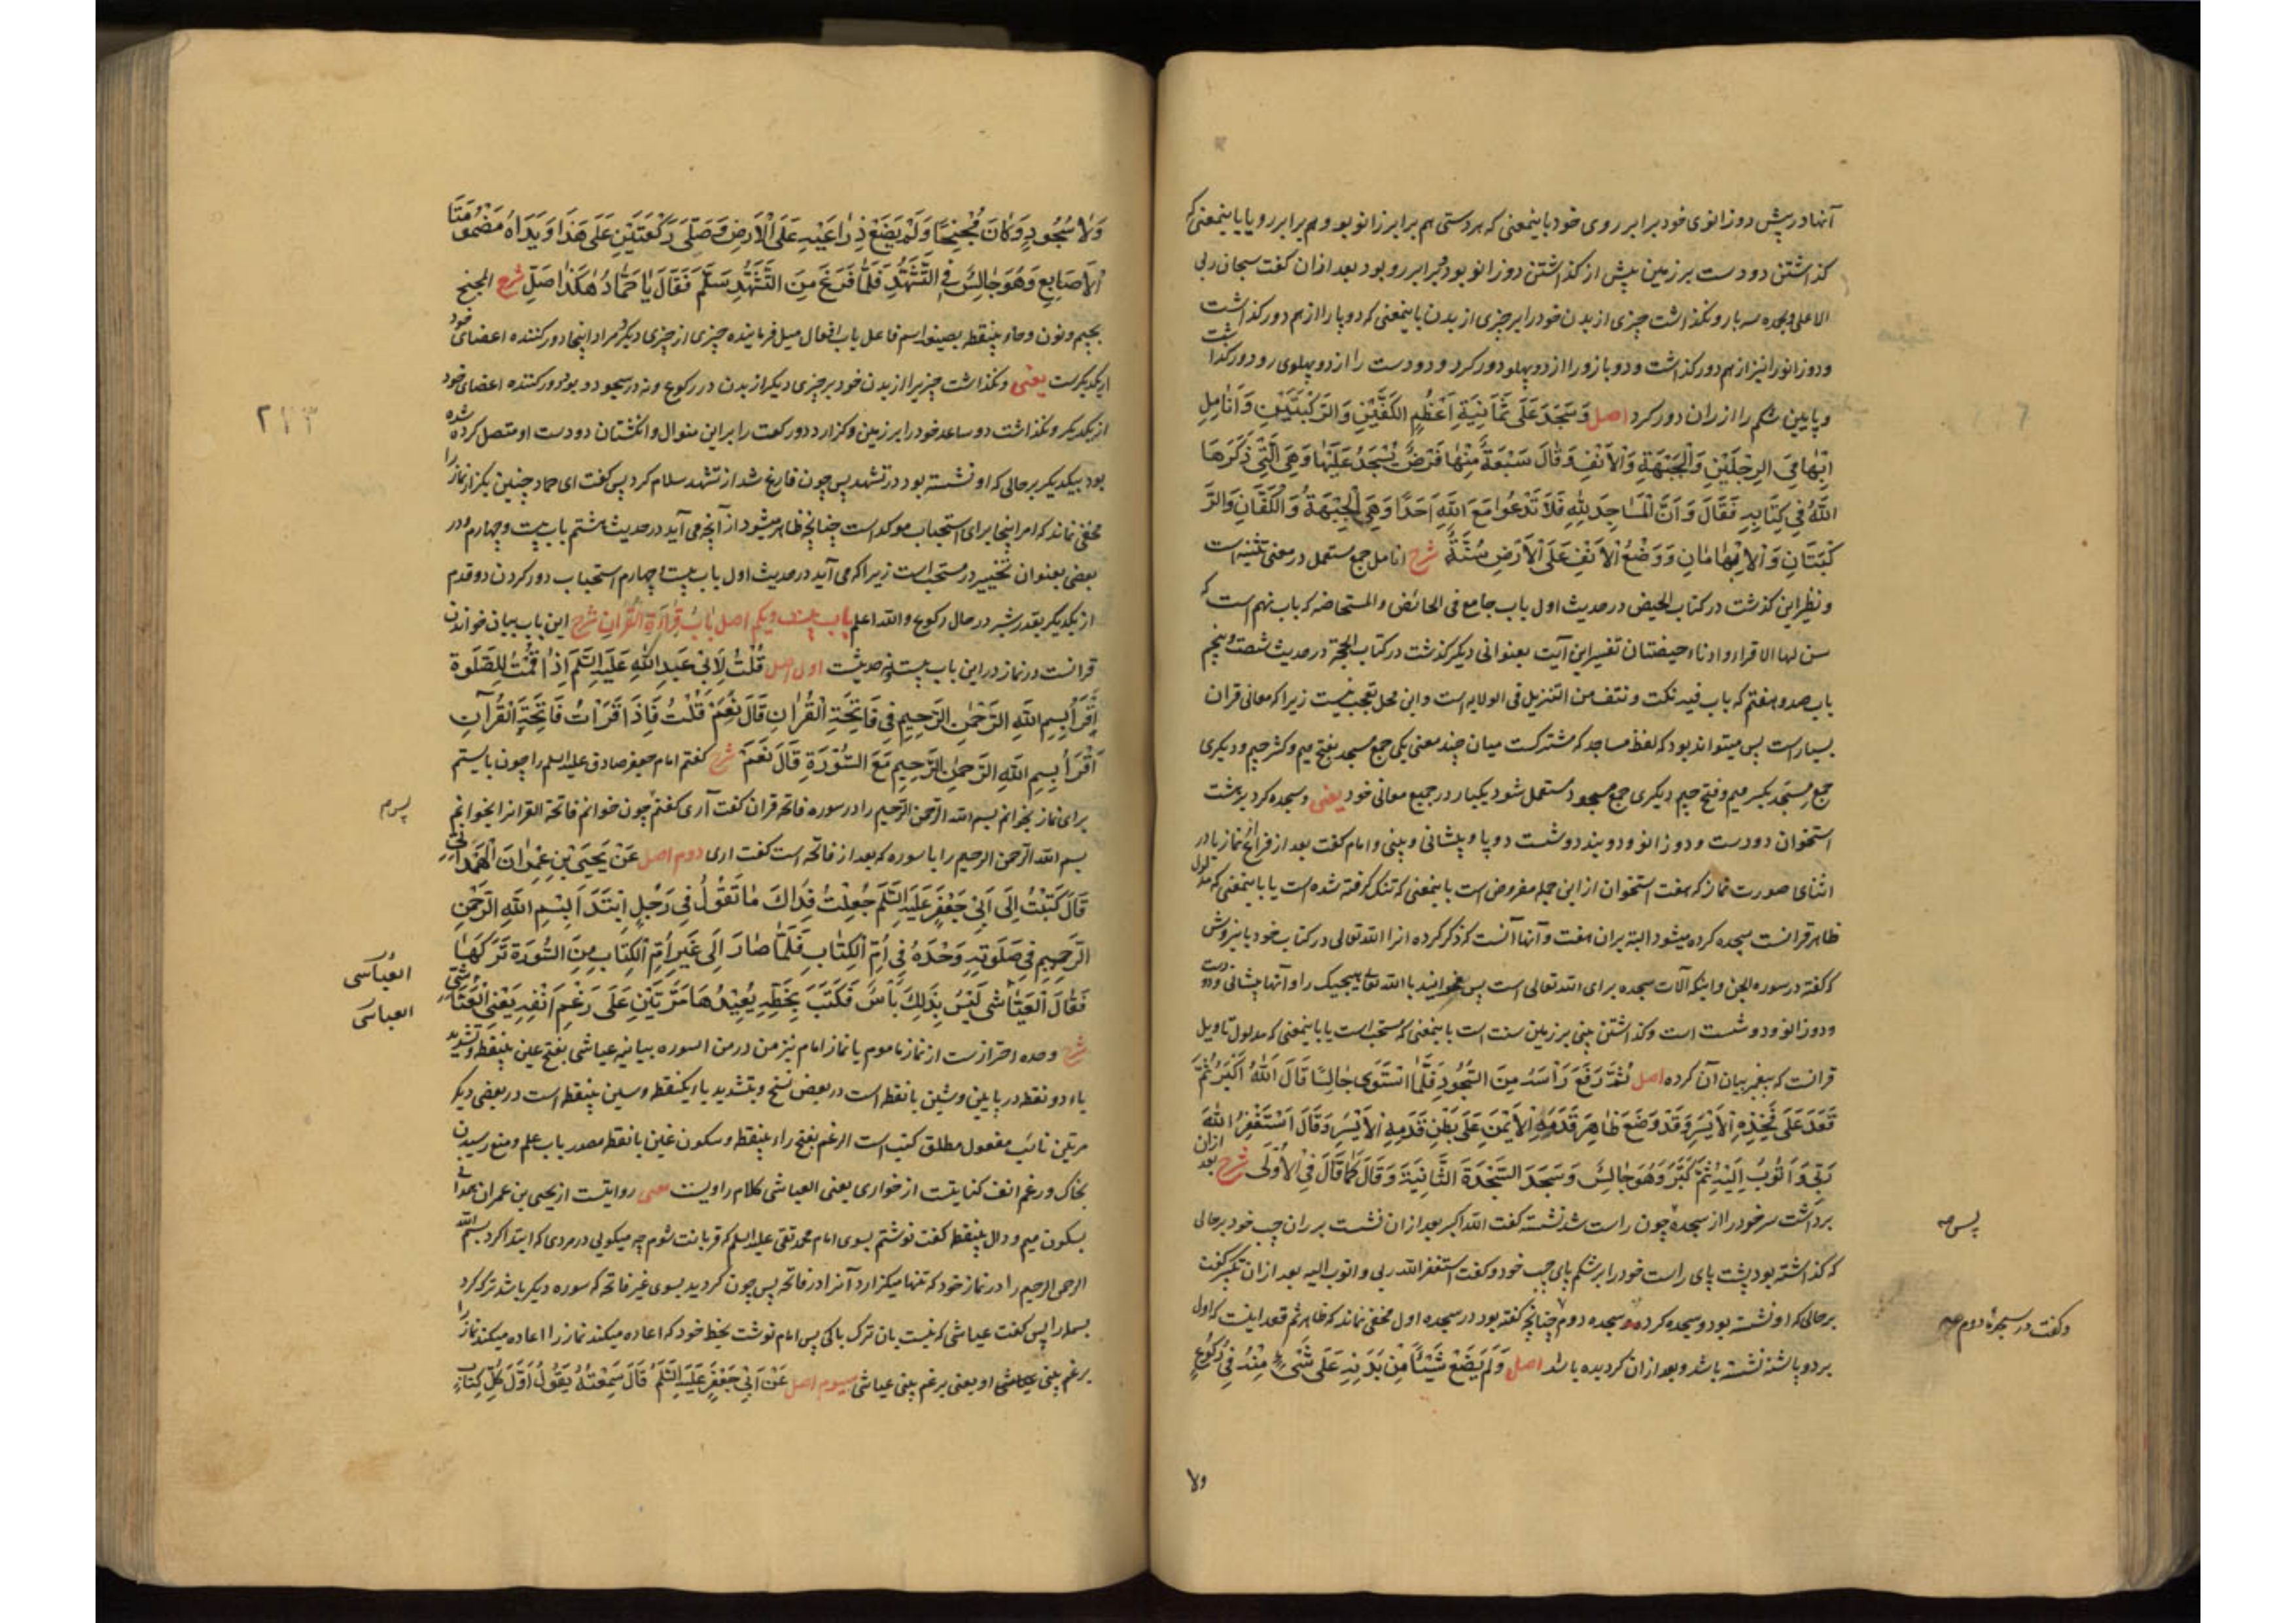 آنها در پیش دو زانوی خود برابر روی خود باینمعنی که هر دستی هم برابر زانو بود و هم برابر رو یا باینمعنی که
کذاشتن دو دست بر زمین پیش از کذاشتن دو زانو بود و برابر رو بود بعد ازان کفت سبحان ربی
الاعلی و بحمده سه بار و نکذاشت چیزی از بدن خود را بر چیزی از بدن باینمعنی که دو پا را از هم دور کذاشت
و دو زانو را نیز از هم دور کذاشت و دو بازو را از دو پهلو دور کرد و دو دست را از دو پهلوی رو دور کذاشت
و پایین شکم را از ران دور کرد اصل وَسَجَدَ عَلَى ثَمَانِيَةِ اَعْظُمٍ الكَفَّيْنِ وَالرُّكْبَتَيْنِ وَاَنَامِلِ
اِبْهَامَىِ الرِجْلَيْنِ وَالْجَبْهَةِ وَالْاَنْفِ وَقَالَ سَبْعَةٌ مِنْهَا فَرْضٌ يُسْجَدُ عَلَيْهَا وَهِىَ الَّتِى ذَكَرَهَا
اللّٰهُ فِى كِتَابِهِ فَقَالَ وَاَنَّ الْمَسَاجِدَ لِلّٰهِ فَلَا تَدْعُوا مَعَ اللّٰهِ اَحَدًا وَهِىَ الْجَبْهَةُ وَالْكَفَّانِ وَالرُّ
كْبَتَانِ وَالْاِبْهَامَانِ وَوَضْعُ الْاَنْفِ عَلَى الْاَرْضِ سُنَّةٌ شرح انامل جمع مستعمل در معنی تثنیه است
و نظیر این کذشت در کتاب الحیض در حدیث اول باب جامع فی الحائض و المستحاضه که باب نهم است که
سن لها الاقراء و ادناه حیضتان تفسیر این آیت بعنوانی دیکر کذشت در کتاب الحجة در حدیث شصت و پنجم
باب صد و هفتم که باب فیه نکت و نتف من التنزیل فی الولایه است و این محل تعجب نیست زیرا که معانی قران
بسیار است پس میتواند بود که لفظ مساجد که مشترکست میان چند معنی یکی جمع مسجد بفتح میم و کسر جیم و دیکری
جمع مسجد بکسر میم و فتح جیم دیکری جمع مسجود مستعمل شود یکبار در جمیع معانی خود یعنی و سجده کرد بر هشت
استخوان دو دست و دو زانو و دو بند دو شست دو پا و پیشانی و بینی و امام کفت بعد از فراغ از نماز یا در
اثنای صورت نماز که هفت استخوان از این جمله مفروض است باینمعنی که تنک کرفته شده است یا باینمعنی که مدلول
ظاهر قرانست سجده کرده میشود البته بران هفت و آنها آنست که ذکر کرده انرا الله تعالی در کتاب خود باینروش
که کفته در سوره الجن و اینکه آلات سجده برای الله تعالی است پس مخوانید با الله تعالی هیچیک را و آنها پیشانی و دو دست
و دو زانو و دو شست است و کذاشتن بینی بر زمین سنت است باینمعنی که مستحب است یا باینمعنی که مدلول تاویل
قرانست که پیغمبر بیان آن کرده اصل ثُمَّ رَفَعَ رَأْسَهُ مِنَ السُّجُودِ فَلَمَّا اسْتَوَى جَالِسًا قَالَ اَللّٰهُ اَكْبَرُ ثُمَّ
قَعَدَ عَلَى فَخِذِهِ الْاَيْسَرِ وَقَدْ وَضَعَ ظَاهِرَ قَدَمِهِ الْاَيْمَنِ عَلَى بَطْنِ قَدَمِهِ الْاَيْسَرِ وَقَالَ اَسْتَغْفِرُ اللّٰهَ
رَبِّى وَاَتُوبُ اِلَيْهِ ثُمَّ كَبَّرَ وَهُوَ جَالِسٌ وَسَجَدَ السَّجْدَةَ الثَّانِيَةَ وَقَالَ كَمَا قَالَ فِى الْاُولَى شرح بعد ازان
برداشت سر خود را از سجده چون راست شد نشسته کفت الله اکبر بعد ازان نشست بر ران چپ خود بر حالی
پس صه
که کذاشته بود پشت پای راست خود را بر شکم پای چپ خود و کفت استغفر الله ربی و اتوب الیه بعد ازان تکبیر کفت
بر حالی که او نشسته بود و سجده کرد سجده دوم چنانچه کفته بود در سجده اول مخفی نماند که ظاهر ثم قعد اینست که اول
و کفت در سجدهٔ دوم صه
بر دو پاشنه نشسته باشد و بعد ازان کردیده باشد اصل وَلَمْ يَضَعْ شَيْئًا مِنْ بَدَنِهِ عَلَى شَىْءٍ مِنْهُ فِى رُكُوعٍ
ولا
وَلَا سُجُودٍ وَكَانَ مُجْنِحًا وَلَمْ يَضَعْ ذِرَاعَيْهِ عَلَى الْاَرْضِ وَصَلَّى رَكْعَتَيْنِ عَلَى هَذَا وَيَدَاهُ مَضْمُومَتَا
الْاَصَابِعِ وَهُوَ جَالِسٌ فِى التَّشَهُّدِ فَلَمَّا فَرَغَ مِنَ التَّشَهُّدِ سَلَّمَ فَقَالَ يَا حَمَّادُ هٰكَذَا صَلِّ شرح المجنح
بجیم و نون و حاء بینقطه بصیغه اسم فاعل باب افعال میل فرماینده چیزی از چیزی دیکر و مراد اینجا دور کننده اعضای خود
از یکدیکرست یعنی و نکذاشت چیزیرا از بدن خود بر چیزی دیکر از بدن در رکوع و نه در سجود و بود دور کننده اعضای خود
از یکدیکر و نکذاشت دو ساعد خود را بر زمین و کزارد دو رکعت را بر این منوال و انکشتان دو دست او متصل کرده شده
۲۷۳
بود بیکدیکر بر حالی که او نشسته بود در تشهد پس چون فارغ شد از تشهد سلام کرد پس کفت ای حماد چنین بکزار نماز را
مخفی نماند که امر اینجا برای استحباب موکد است چنانچه ظاهر میشود از آنچه می آید در حدیث هشتم باب بیست و چهارم و در
بعضی بعنوان تخییر در مستحب است زیرا که می آید در حدیث اول باب بیست و چهارم استحباب دور کردن دو قدم
از یکدیکر بقدر شبر در حال رکوع و الله اعلم باب بیست و یکم اصل بَابُ قِرَاءَةِ الْقُرْاٰنِ شرح این باب بیان خواندن
قرانست در نماز در این باب بیست و نه حدیثست اول اصل قُلْتُ لِاَبِى عَبْدِ اللّٰهِ عَلَيْهِ السَّلَمُ اِذَا قُمْتُ لِلصَّلٰوةِ
اَقْرَأُ بِسْمِ اللّٰهِ الرَّحْمٰنِ الرَّحِيمِ فِى فَاتِحَةِ الْقُرْاٰنِ قَالَ نَعَمْ قُلْتُ فَاِذَا قَرَأْتُ فَاتِحَةَ الْقُرْآنِ
اَقْرَأُ بِسْمِ اللّٰهِ الرَّحْمٰنِ الرَّحِيمِ مَعَ السُّوْرَةِ قَالَ نَعَمْ شرح کفتم امام جعفر صادق علیه السلم را چون بایستم
برای نماز بخوانم بسم الله الرحمن الرحیم را در سوره فاتحه قران کفت آری کفتم چون خوانم فاتحة القرانرا بخوانم
پس صه
بسم الله الرحمن الرحیم را با سوره که بعد از فاتحه است کفت اری دوم اصل عَنْ يَحْيَى بْنِ عِمْرَانَ الْهَمْدَانِىِّ
قَالَ كَتَبْتُ اِلَى اَبِى جَعْفَرٍ عَلَيْهِ السَّلَمُ جُعِلْتُ فِدَاكَ مَا تَقُوْلُ فِى رَجُلٍ اِبْتَدَأَ بِسْمِ اللّٰهِ الرَّحْمٰنِ
الرَّحِيمِ فِى صَلٰوتِهِ وَحْدَهُ فِى اُمِّ الْكِتَابِ فَلَمَّا صَارَ اِلَى غَيْرِ اُمِّ الْكِتَابِ مِنَ السُّورَةِ تَرَكَهَا
العُباسی
فَقَالَ الْعَيَّاشى لَيْسَ بِذٰلِكَ بَأْسٌ فَكَتَبَ بِخَطِّهِ يُعِيْدُهَا مَرَّتَيْنِ عَلَى رَغْمِ اَنْفِهِ يَعْنِى الْعَيَّاشِىَّ
العباسی
شرح وحده احترازست از نماز ماموم یا نماز امام نیز من در من السوره بیانیه عیاشی بفتح عین بینقطه و تشدید
یاء دو نقطه در پایین و شین بانقطه است در بعض نسخ و بتشدید باء یکنقطه و سین بینقطه است در بعضی دیکر
مرتین نائب مفعول مطلق کتب است الرغم بفتح راء بینقطه و سکون غین بانقطه مصدر باب علم و منع رسیدن
بخاک و رغم انف کنایتست از خواری یعنی العیاشی کلام راویست یعنی روایتست از یحیی بن عمران همدانی
بسکون میم و دال بینقطه کفت نوشتم بسوی امام محمد تقی علیه السلم که قربانت شوم چه میکویی در مردی که ابتدا کرد بسم الله
الرحمن الرحیم را در نماز خود که تنها میکزارد آنرا در فاتحه پس چون کردید بسوی غیر فاتحه که سوره دیکر باشد ترک کرد
بسمله را پس کفت عیاشی که نیست بان ترک باکی پس امام نوشت بخط خود که اعاده میکند نماز را اعاده میکند نماز را
برغم بینی عیاشی او یعنی برغم بینی عیاشی سیوم اصل عَنْ اَبِى جَعْفَرٍ عَلَيْهِ السَّلَمُ قَالَ سَمِعْتُهُ يَقُولُ اَوَّلُ كُلِّ كِتَابٍ